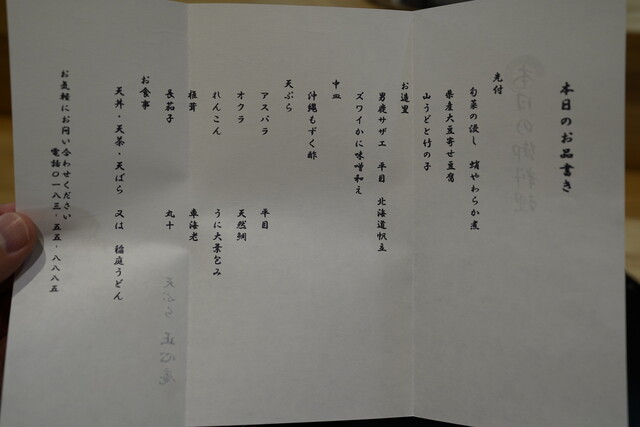 本日のお品書き
先付
旬菜の浸し 蛸やわらか煮
県産大豆寄せ豆腐
山うどと竹の子
お造里
男鹿サザエ 平目 北海道帆立
ズワイかに味噌和え
中皿
沖縄もずく酢
天ぷら
アスパラ 平目
オクラ 天然鯛
れんこん うに大葉包み
椎茸 車海老
長茄子 丸十
お食事
天丼・天茶・天ばら 又は 稲庭うどん
お気軽にお問い合わせください
電話〇一八三・五五・八八八五
本日の御料理
天ぷら 正心庵